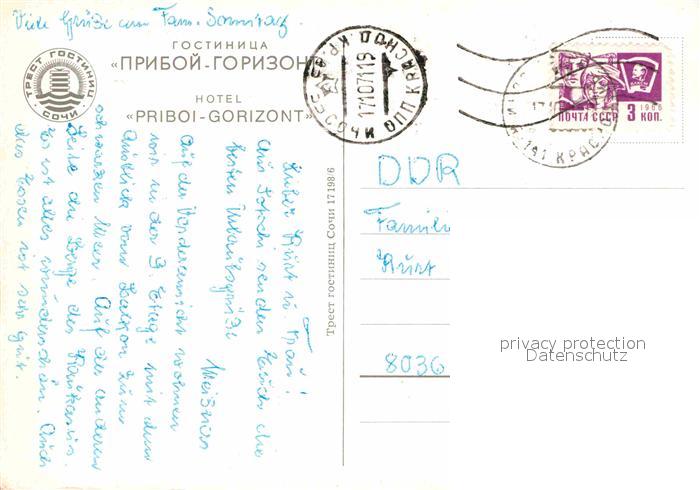 Viele Grüße von Fam. Sonntag
ТРЕСТ ГОСТИНИЦ
СОЧИ
ГОСТИНИЦА
«ПРИБОЙ-ГОРИЗОН
HOTEL
«PRIBOI-GORIZONT»
17107119
СОЧИ ОПП КРАСНОД. КРА
ПОЧТА СССР 1966
3 КОП.
Lieber Kurt u. Frau!
Aus Sotschi senden Euch die
besten Urlaubsgrüße
Meißners
Auf der Vorderansicht wohnen
wir in der 9. Etage mit dem
Ausblick vom Balkon zum
schwarzen Meer. Auf der anderen
Seite die Berge des Kaukasus.
Es ist alles wunderschön. Auch
das Essen ist sehr gut.
Трест гостиниц Сочи 17198/6
DDR
Famili
Kurt
8036
privacy protection
Datenschutz